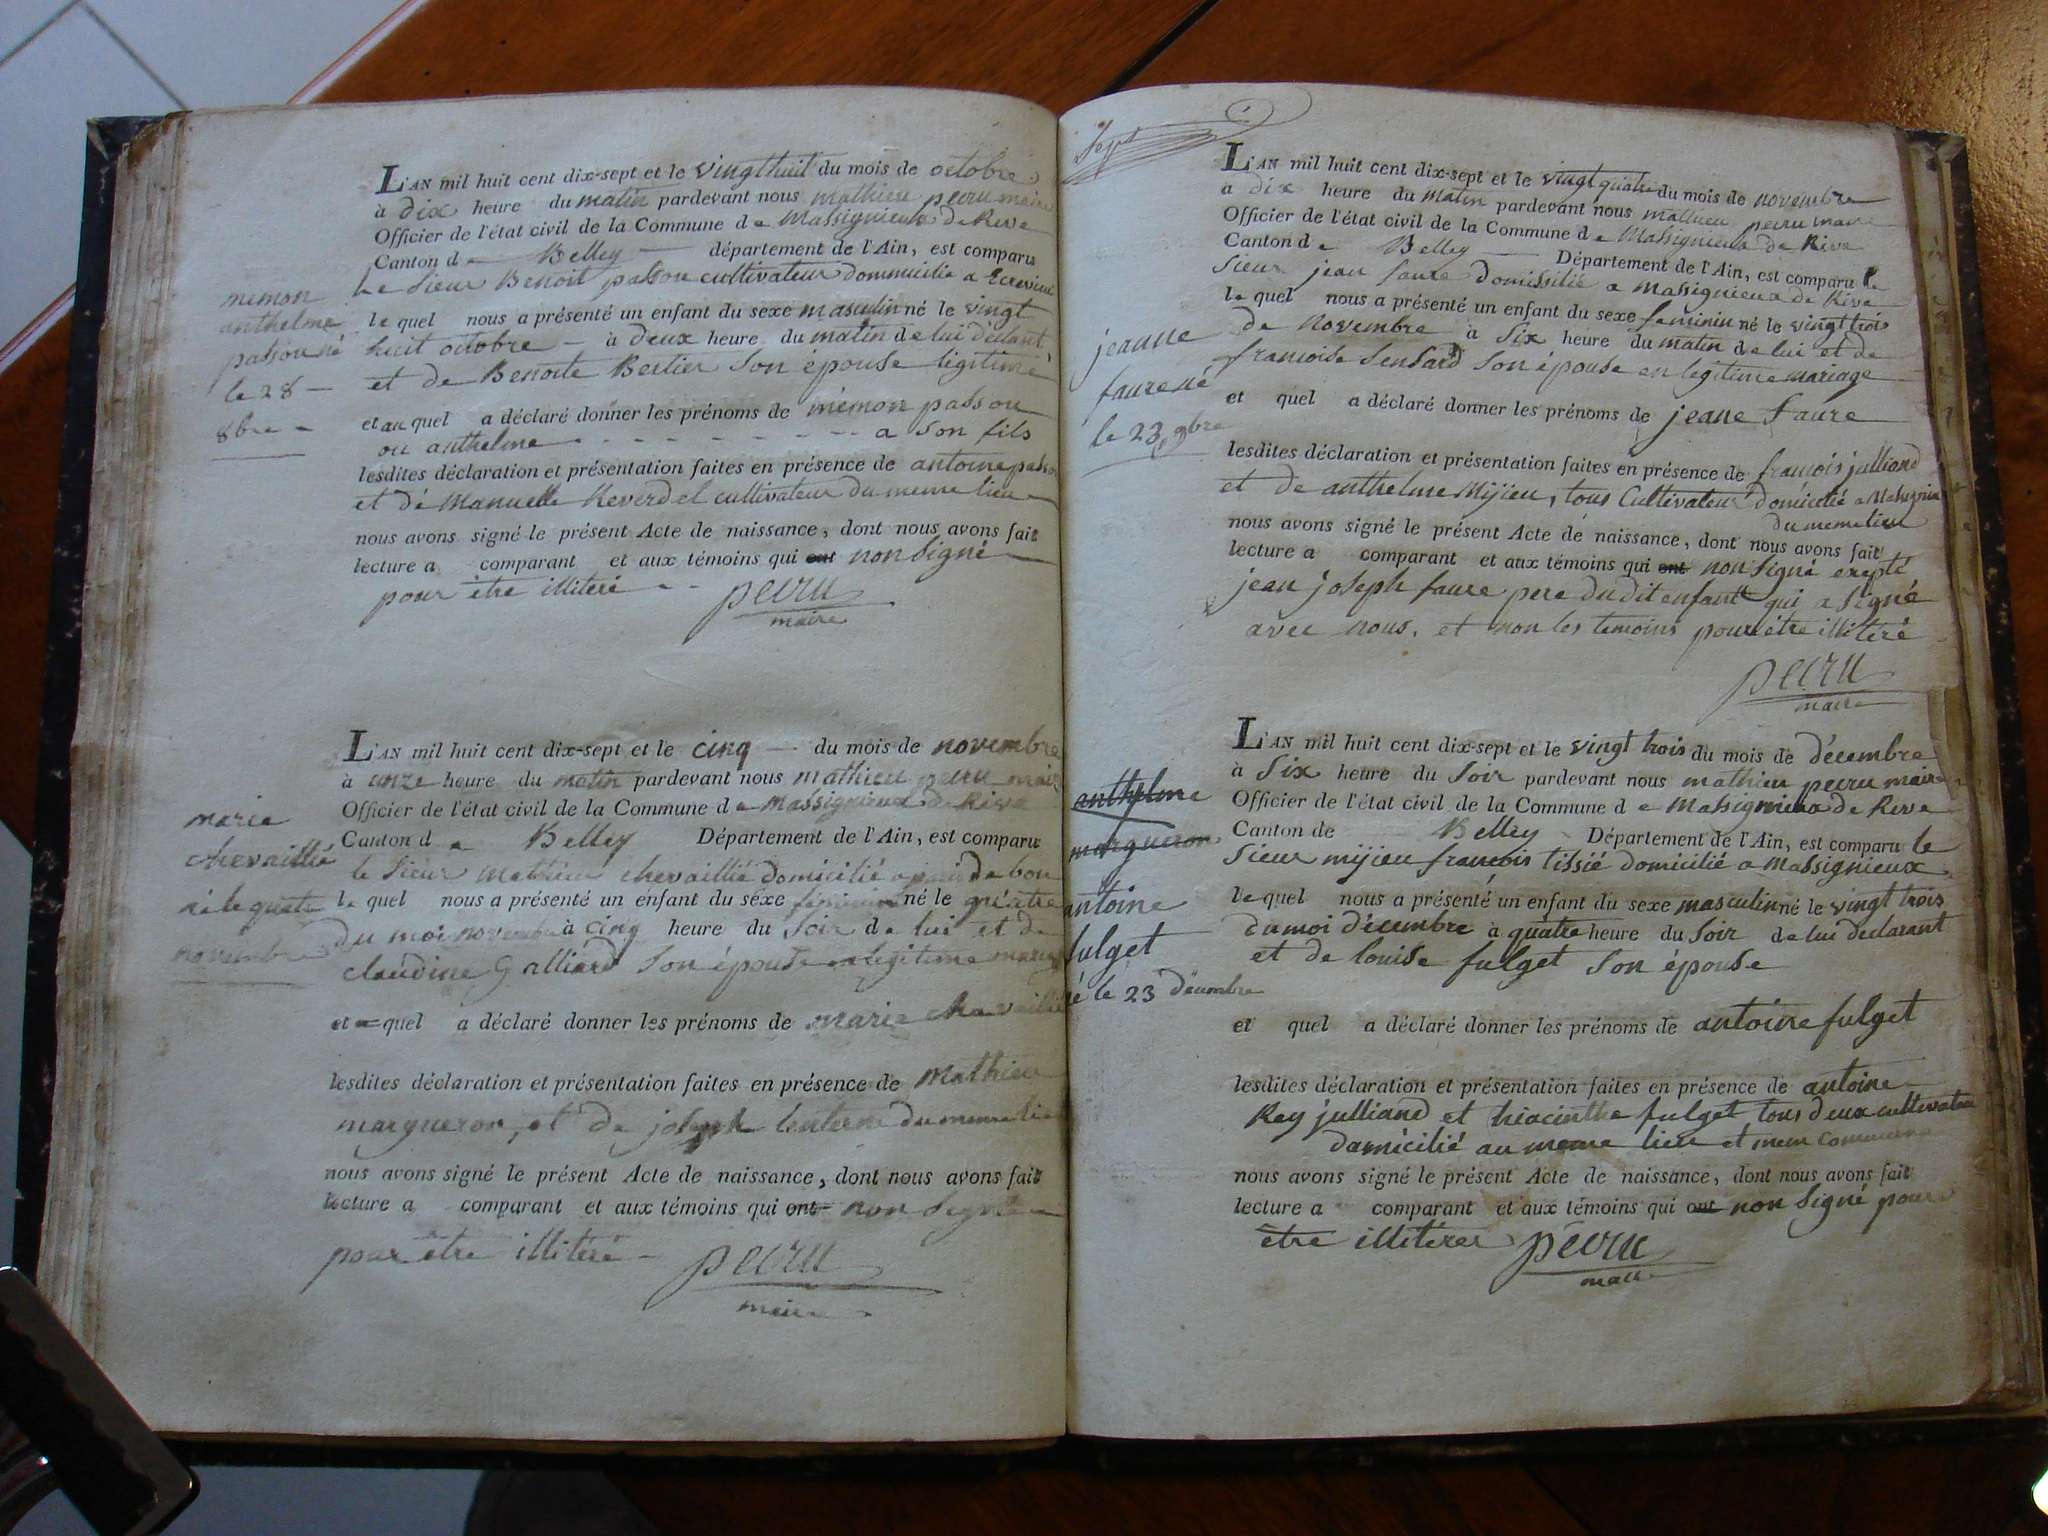 L'AN mil huit cent dix-sept et le vingt huit du mois de octobre
à dix heure du matin pardevant nous mathieu pecru maire
Officier de l'état civil de la Commune d e Massignieux de Rive
Canton d e Belley département de l'Ain, est comparu
Le Sieur Benoit passou cultivateur dommicilié a
le quel nous a présenté un enfant du sexe masculin né le vingt
huit octobre - à deux heure du matin de lui déclant,
et de Benoite Bertier Son épouse légitime
et au quel a déclaré donner les prénoms de mémon passou
ou anthelme a son fils
lesdites déclaration et présentation faites en présence de antoine passou
et dé Manuelle Reverdel cultivateur du meme lieu
nous avons signé le présent Acte de naissance, dont nous avons fait
lecture a comparant et aux témoins qui ont non Signé
pour être illitéré - - pecru
maire
memon
anthelme
passou né
le 28 -
8bre -
L'AN mil huit cent dix-sept et le cinq du mois de novembre
à onze heure du matin pardevant nous mathieu pecru maire
Officier de l'état civil de la Commune d e Massignieux de Rive
Canton d e Belley Département de l'Ain, est comparu
le Sieur Mathieu chevaillié domicilié a de bon
le quel nous a présenté un enfant du sexe féminin né le quatre
du moi novembre à cinq heure du Soir de lui et de
claudine Galliard Son épouse en legitime mariage
et a quel a déclaré donner les prénoms de marie chavaillié
lesdites déclaration et présentation faites en présence de Mathieu
margueron, et De joseph du meme lieu
nous avons signé le présent Acte de naissance, dont nous avons fait
lecture a comparant et aux témoins qui ont non Signé
pour être illitéré - pecru
maire
marie
chevaillié
né le quatre
novembre
Sept
L'AN mil huit cent dix-sept et le vingt quatre du mois de novembre
à dix heure du matin pardevant nous mathieu pecru maire
Officier de l'état civil de la Commune d e Massignieux de Rive
Canton d e Belley Département de l'Ain, est comparu le
Sieur jean faure domissilié a Massignieux de Rive
le quel nous a présenté un enfant du sexe feminin né le vingt trois
de novembre à Six heure du matin de lui et de
francoise Sensard Son épouse en legitime mariage
et quel a déclaré donner les prénoms de jeane faure
lesdites déclaration et présentation faites en présence de francois julliand
et de anthelme Mijieu, tous Cultivateur domicilié a
du meme lieu
nous avons signé le présent Acte de naissance, dont nous avons fait
lecture a comparant et aux témoins qui ont non Signé exepté
jean joseph faure pere du dit enfant qui a Signé
avec nous, et non les temoins pour être illitéré
pecru
maire
jeanne
faure né
le 23 9bre
L'AN mil huit cent dix-sept et le vingt trois du mois de décembre
à Six heure du Soir pardevant nous mathieu pecru maire
Officier de l'état civil de la Commune d e Massignieux de Rive
Canton de Belley Département de l'Ain, est comparu le
Sieur mijieu francois tissié domicilié a Massignieux
le quel nous a présenté un enfant du sexe masculin né le vingt trois
du moi décembre à quatre heure du Soir de lui declarant
et de louise fulget Son épouse
et quel a déclaré donner les prénoms de antoine fulget
lesdites déclaration et présentation faites en présence de antoine
Rey julliand et hiacinthe fulget tous deux cultivateur
domicilié au meme lieu et mem commune
nous avons signé le présent Acte de naissance, dont nous avons fait
lecture a comparant et aux témoins qui ont non Signé pour
être illitérer pecru
maire
anthelme
margueron
antoine
fulget
né le 23 décembre